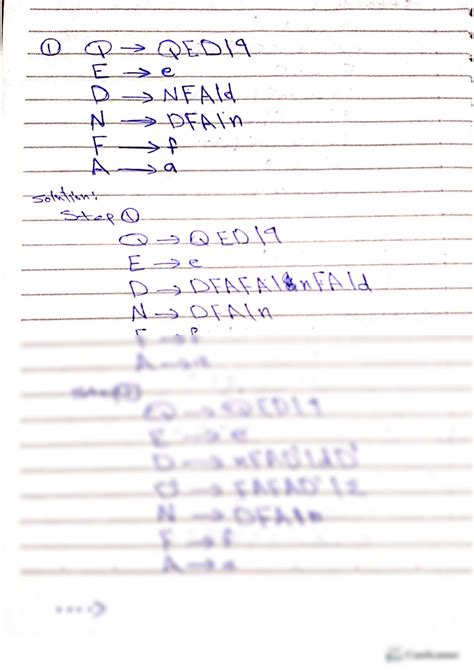 ① Q → QED|q
E → e
D → NFA|d
N → DFA|n
F → f
A → a
Solution:
Step ①
Q → QED|q
E → e
D → DFAFA|nFA|d
N → DFA|n
F → f
A → a
Q → QED|q
E → e
D → nFAD'|dD'
→ FAFAD'|
N → DFA|n
F → f
A →